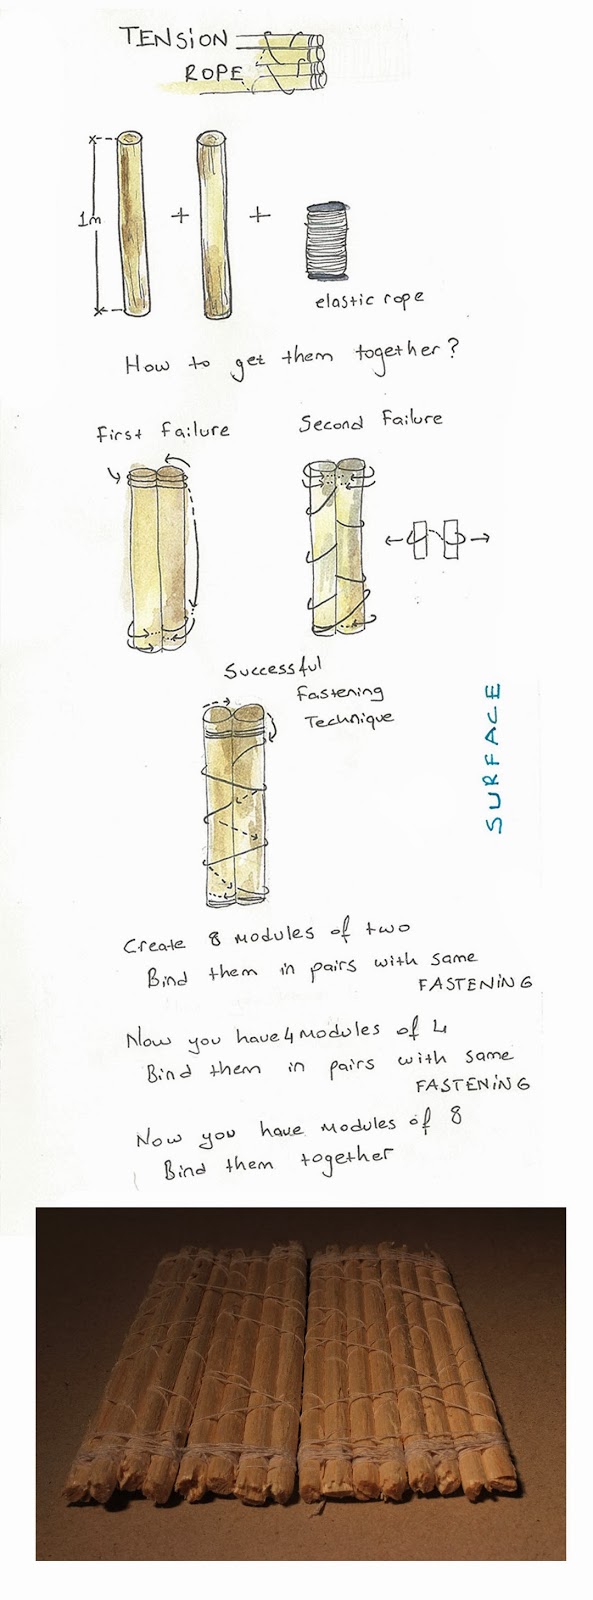 TENSION
ROPE
1m
+
+
elastic rope
How to get them together?
First Failure
Second Failure
Successful
Fastening
Technique
SURFACE
Create 8 modules of two
Bind them in pairs with same
FASTENING
Now you have 4 modules of 4
Bind them in pairs with same
FASTENING
Now you have modules of 8
Bind them together